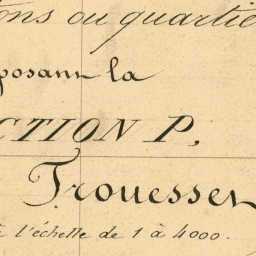 ons ou quartie
posant la
CTION P,
Trouessen
à l'échelle de 1 à 4000.